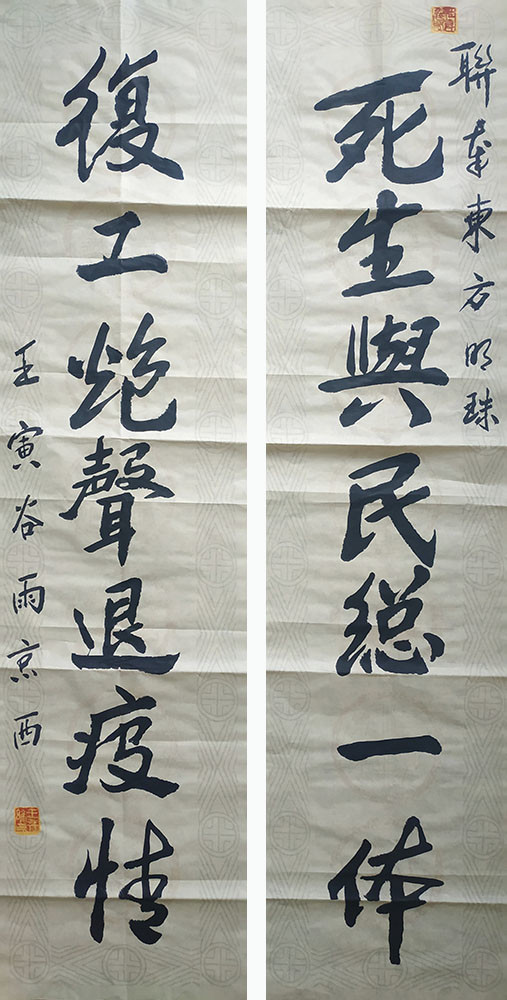 聯奉東方明珠
死生與民総一体
復工炮聲退疫情
壬寅谷雨京西